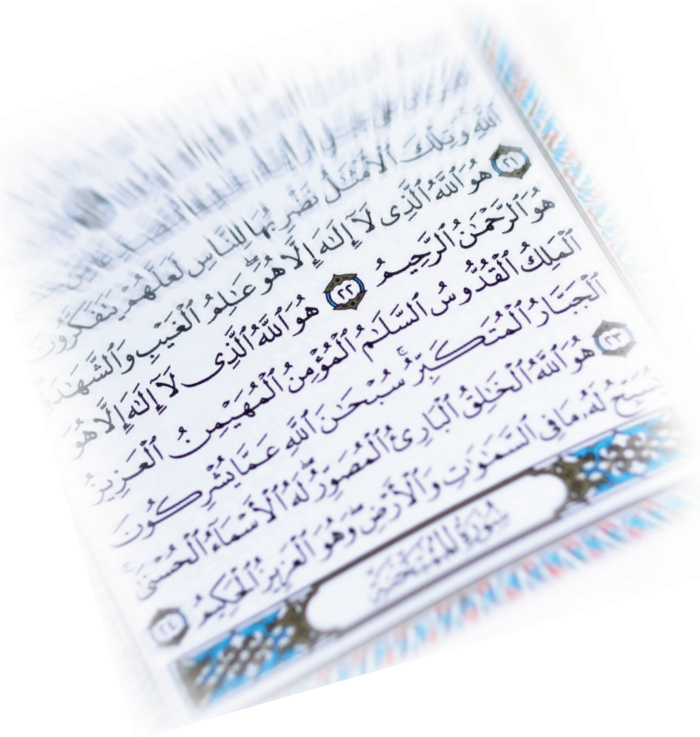 ٱللَّهِ وَتِلْكَ ٱلْأَمْثَٰلُ نَضْرِبُهَا لِلنَّاسِ لَعَلَّهُمْ يَتَفَكَّرُونَ
٢١ هُوَ ٱللَّهُ ٱلَّذِى لَآ إِلَٰهَ إِلَّا هُوَ ۖ عَٰلِمُ ٱلْغَيْبِ وَٱلشَّهَٰدَةِ
هُوَ ٱلرَّحْمَٰنُ ٱلرَّحِيمُ ٢٢ هُوَ ٱللَّهُ ٱلَّذِى لَآ إِلَٰهَ إِلَّا هُوَ
ٱلْمَلِكُ ٱلْقُدُّوسُ ٱلسَّلَٰمُ ٱلْمُؤْمِنُ ٱلْمُهَيْمِنُ ٱلْعَزِيزُ
ٱلْجَبَّارُ ٱلْمُتَكَبِّرُ ۚ سُبْحَٰنَ ٱللَّهِ عَمَّا يُشْرِكُونَ
٢٣ هُوَ ٱللَّهُ ٱلْخَٰلِقُ ٱلْبَارِئُ ٱلْمُصَوِّرُ ۖ لَهُ ٱلْأَسْمَآءُ ٱلْحُسْنَىٰ ۚ
يُسَبِّحُ لَهُۥ مَا فِى ٱلسَّمَٰوَٰتِ وَٱلْأَرْضِ ۖ وَهُوَ ٱلْعَزِيزُ ٱلْحَكِيمُ ٢٤
سُورَةُ المُمْتَحنَةِ